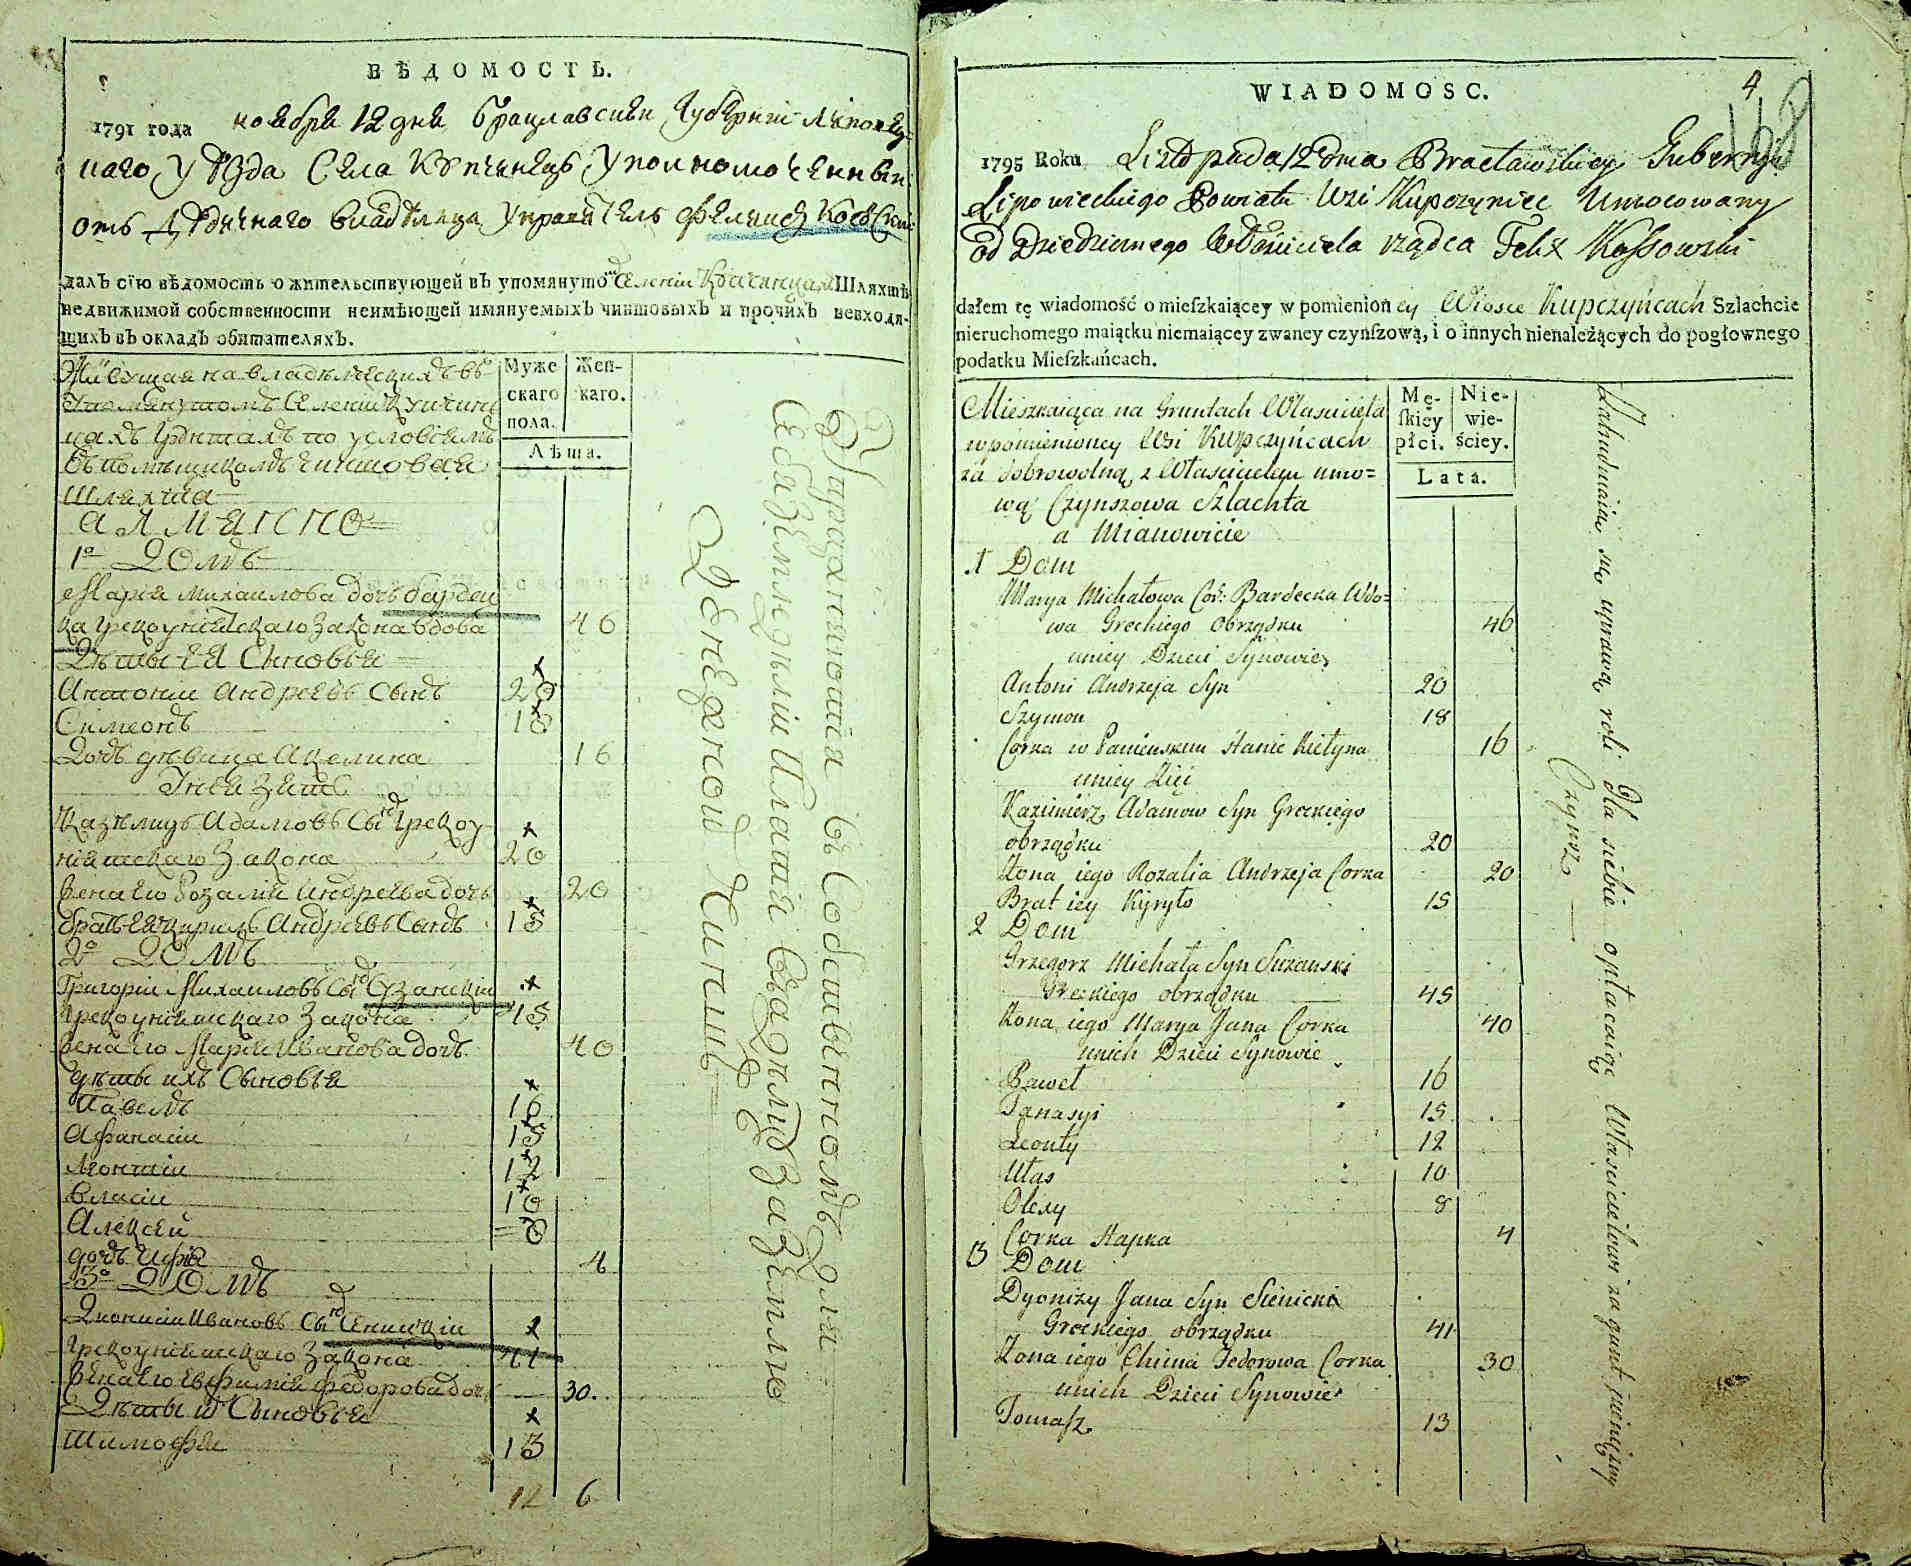 ВѢДОМОСТЬ.
1791 года ноября 12 дня Брацлавской Губерніи Липовец-
каго уѣзда Села Купчинецъ Уполномоченный
отъ Дѣдичнаго владѣльца Управитель Феликсъ Косовский
далъ сїю вѣдомость о жительствующей въ упомянуто Селении Купчинцахъ Шляхтѣ
недвижимой собственности неимѣющей имянуемыхъ чиншовыхъ и прочихъ невходя-
щихъ въ окладъ обитателяхъ.
Муже
скаго
пола.
Жен-
каго.
Лѣта.
Живущая на владѣлческихъ въ
упомянутомъ Селении Купчин-
цахъ грунтахъ по условіемъ
съ помѣщикомъ чиншовая
шляхта
А ЛМЕННО
1о ДОМЪ
Марья Михаилова дочь Бардец
ка грекоуніятскаго закона вдова 46
Дѣты ея Сыновья
Антоній Андреевъ Сынъ 20
Симеонъ 18
Дочь дѣвица Акелина 16
У нея Зять
Казѣмиръ Адамовъ Сынъ грекоу
ніятскаго Закона 20
Жена его Розалія Андреева дочь 20
братъ ея Кирилъ Андреевъ Сынъ 15
2о ДОМЪ
Григорій Михаиловъ Сынъ Сузанскій
грекоуніятскаго Закона 45
Жена его Марья Иванова дочь 40
дѣты ихъ Сыновья
Павелъ 16
Афанасій 15
Леонтій 12
Власій 10
Алексей 8
дочь 4
3о ДОМЪ
Дионисій Ивановъ Сынъ Сеницкій
грекоуніятскаго Закона 41
Жена его Евфимія Федорова дочь 30.
Дѣты их Сыновья
Тимофей 13
12 6
Упражняются въ Собственномъ для
Себя Земледѣліи Платя Владѣлцу за землю
Денежной Чиншъ
WIADOMOSC.
4
168
1795 Roku Listopada 12 dnia Bracławskiey Gubernyi
Lipowieckiego Powiatu Wsi Kupczyniec Umocowany
od Dziedzicznego Właściciela rządca Felix Kossowski
dałem tę wiadomość o mieſzkaiącey w pomienioney Wiosce Kupczyńcach Szlachcie
nieruchomego maiątku niemaiącey zwaney czynſzową, i o innych nienależących do pogłownego
podatku Mieſzkańcach.
Mę-
ſkiey
płci.
Nie-
wie-
ściey.
Lata.
Mieszkaiąca na Gruntach Właściciela
wpomienioney Wsi Kupczyńcach
za dobrowolną z Właścicielem umo=
wą Czynszowa Szlachta
a Mianowicie
1 Dom
Marya Michałowa Cor: Bardecka Wdo=
wa Greckiego obrządku 46
uniey Dzieci Synowie
Antoni Andrzeja Syn 20
Szymon 18
Corka w Panieńskim stanie Kiełyna 16
uniey Zięć
Kazimierz Adamow Syn Greckiego
obrządku 20
Żona iego Rozalia Andrzeja Corka 20
Brat iey Kyryło 15
2 Dom
Grzegorz Michała Syn Suzanski
Greckiego obrządku 45
Żona iego Marya Jana Corka 40
unich Dzieci Synowie
Paweł 16
Tanasyi 15
Leonty 12
Ułas 10
Olexy 8
Corka Hapka 4
3 Dom
Dyonizy Jana Syn Sienicki
Greckiego obrządku 41
Żona iego Chima Fedorowa Corka 30
unich Dzieci Synowie
Tomasz 13
Zatrudniaią się uprawą roli dla siebie opłacaiąc Właścicielowi za grunt pieniężny
Czynsz